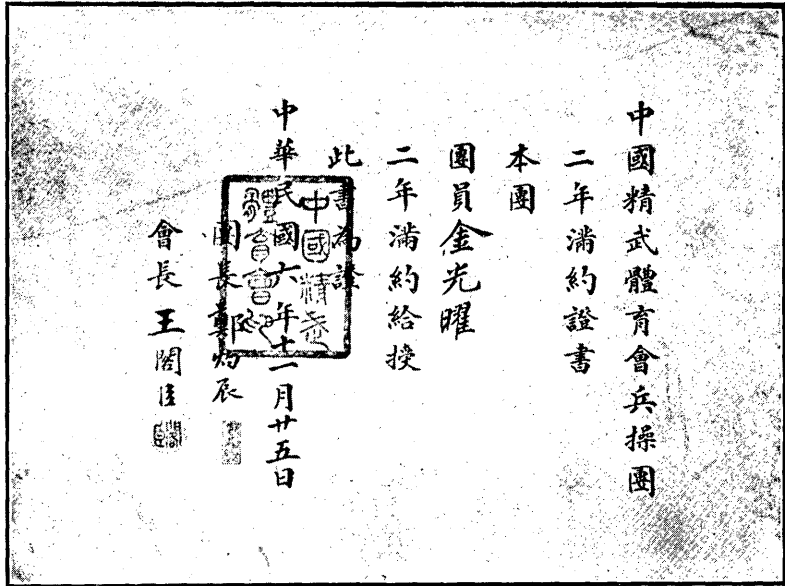 中國精武體育會兵操團
二年滿約證書
本團
團員金光曜
二年滿約給換
此書為證
中華民國六年十一月廿五日
團長鄭灼辰
會長王閣臣
中國精武
體育會